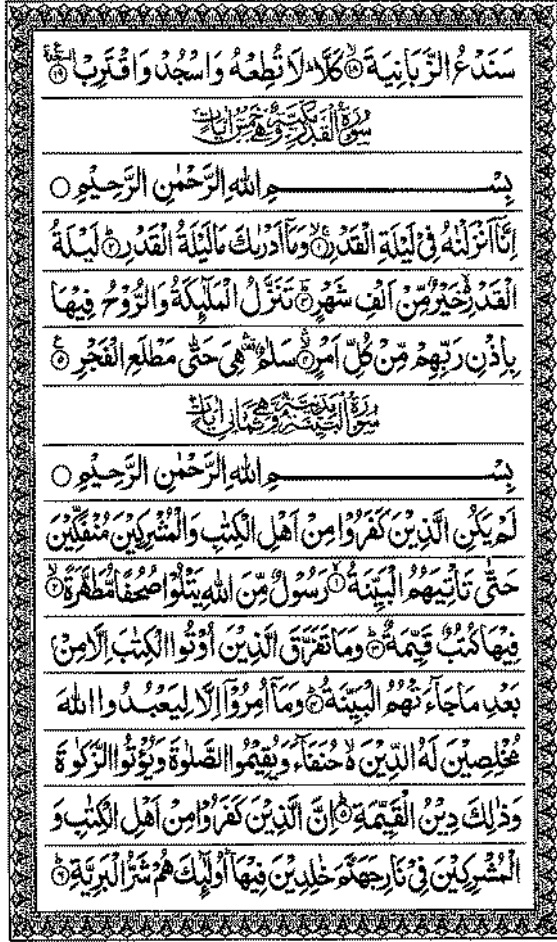 سَنَدْعُ الزَّبَانِيَةَ ۙ‏﴿۱۸﴾ كَلَّا ؕ لَا تُطِعْهُ وَاسْجُدْ وَاقْتَرِبْ ﴿۱۹﴾ السجدة
سُوْرَةُ الْقَدْرِ مَكِّيَّةٌ وَّهِيَ خَمْسُ اٰيَاتٍ
بِسْمِ اللهِ الرَّحْمٰنِ الرَّحِيْمِ ○
اِنَّاۤ اَنْزَلْنٰهُ فِيْ لَيْلَةِ الْقَدْرِ ۚۖ﴿۱﴾ وَمَاۤ اَدْرٰىكَ مَا لَيْلَةُ الْقَدْرِ ؕ﴿۲﴾ لَيْلَةُ
الْقَدْرِ ۙ خَيْرٌ مِّنْ اَلْفِ شَهْرٍ ؕ﴿۳﴾ تَنَزَّلُ الْمَلٰٓئِكَةُ وَالرُّوْحُ فِيْهَا
بِاِذْنِ رَبِّهِمْ مِّنْ كُلِّ اَمْرٍ ۙۛ﴿۴﴾ سَلٰمٌ ۛ هِيَ حَتّٰى مَطْلَعِ الْفَجْرِ ﴿۵﴾ ع
سُوْرَةُ الْبَيِّنَةِ مَدَنِيَّةٌ وَّهِيَ ثَمَانِ اٰيَاتٍ
بِسْمِ اللهِ الرَّحْمٰنِ الرَّحِيْمِ ○
لَمْ يَكُنِ الَّذِيْنَ كَفَرُوْا مِنْ اَهْلِ الْكِتٰبِ وَالْمُشْرِكِيْنَ مُنْفَكِّيْنَ
حَتّٰى تَاْتِيَهُمُ الْبَيِّنَةُ ۙ﴿۱﴾ رَسُوْلٌ مِّنَ اللهِ يَتْلُوْا صُحُفًا مُّطَهَّرَةً ۙ﴿۲﴾
فِيْهَا كُتُبٌ قَيِّمَةٌ ؕ﴿۳﴾ وَمَا تَفَرَّقَ الَّذِيْنَ اُوْتُوا الْكِتٰبَ اِلَّا مِنْ
بَعْدِ مَا جَآءَتْهُمُ الْبَيِّنَةُ ؕ﴿۴﴾ وَمَاۤ اُمِرُوْۤا اِلَّا لِيَعْبُدُوا اللهَ
مُخْلِصِيْنَ لَهُ الدِّيْنَ ۙ حُنَفَآءَ وَيُقِيْمُوا الصَّلٰوةَ وَيُؤْتُوا الزَّكٰوةَ
وَذٰلِكَ دِيْنُ الْقَيِّمَةِ ؕ﴿۵﴾ اِنَّ الَّذِيْنَ كَفَرُوْا مِنْ اَهْلِ الْكِتٰبِ وَ
الْمُشْرِكِيْنَ فِيْ نَارِ جَهَنَّمَ خٰلِدِيْنَ فِيْهَا ؕ اُولٰٓئِكَ هُمْ شَرُّ الْبَرِيَّةِ ؕ﴿۶﴾